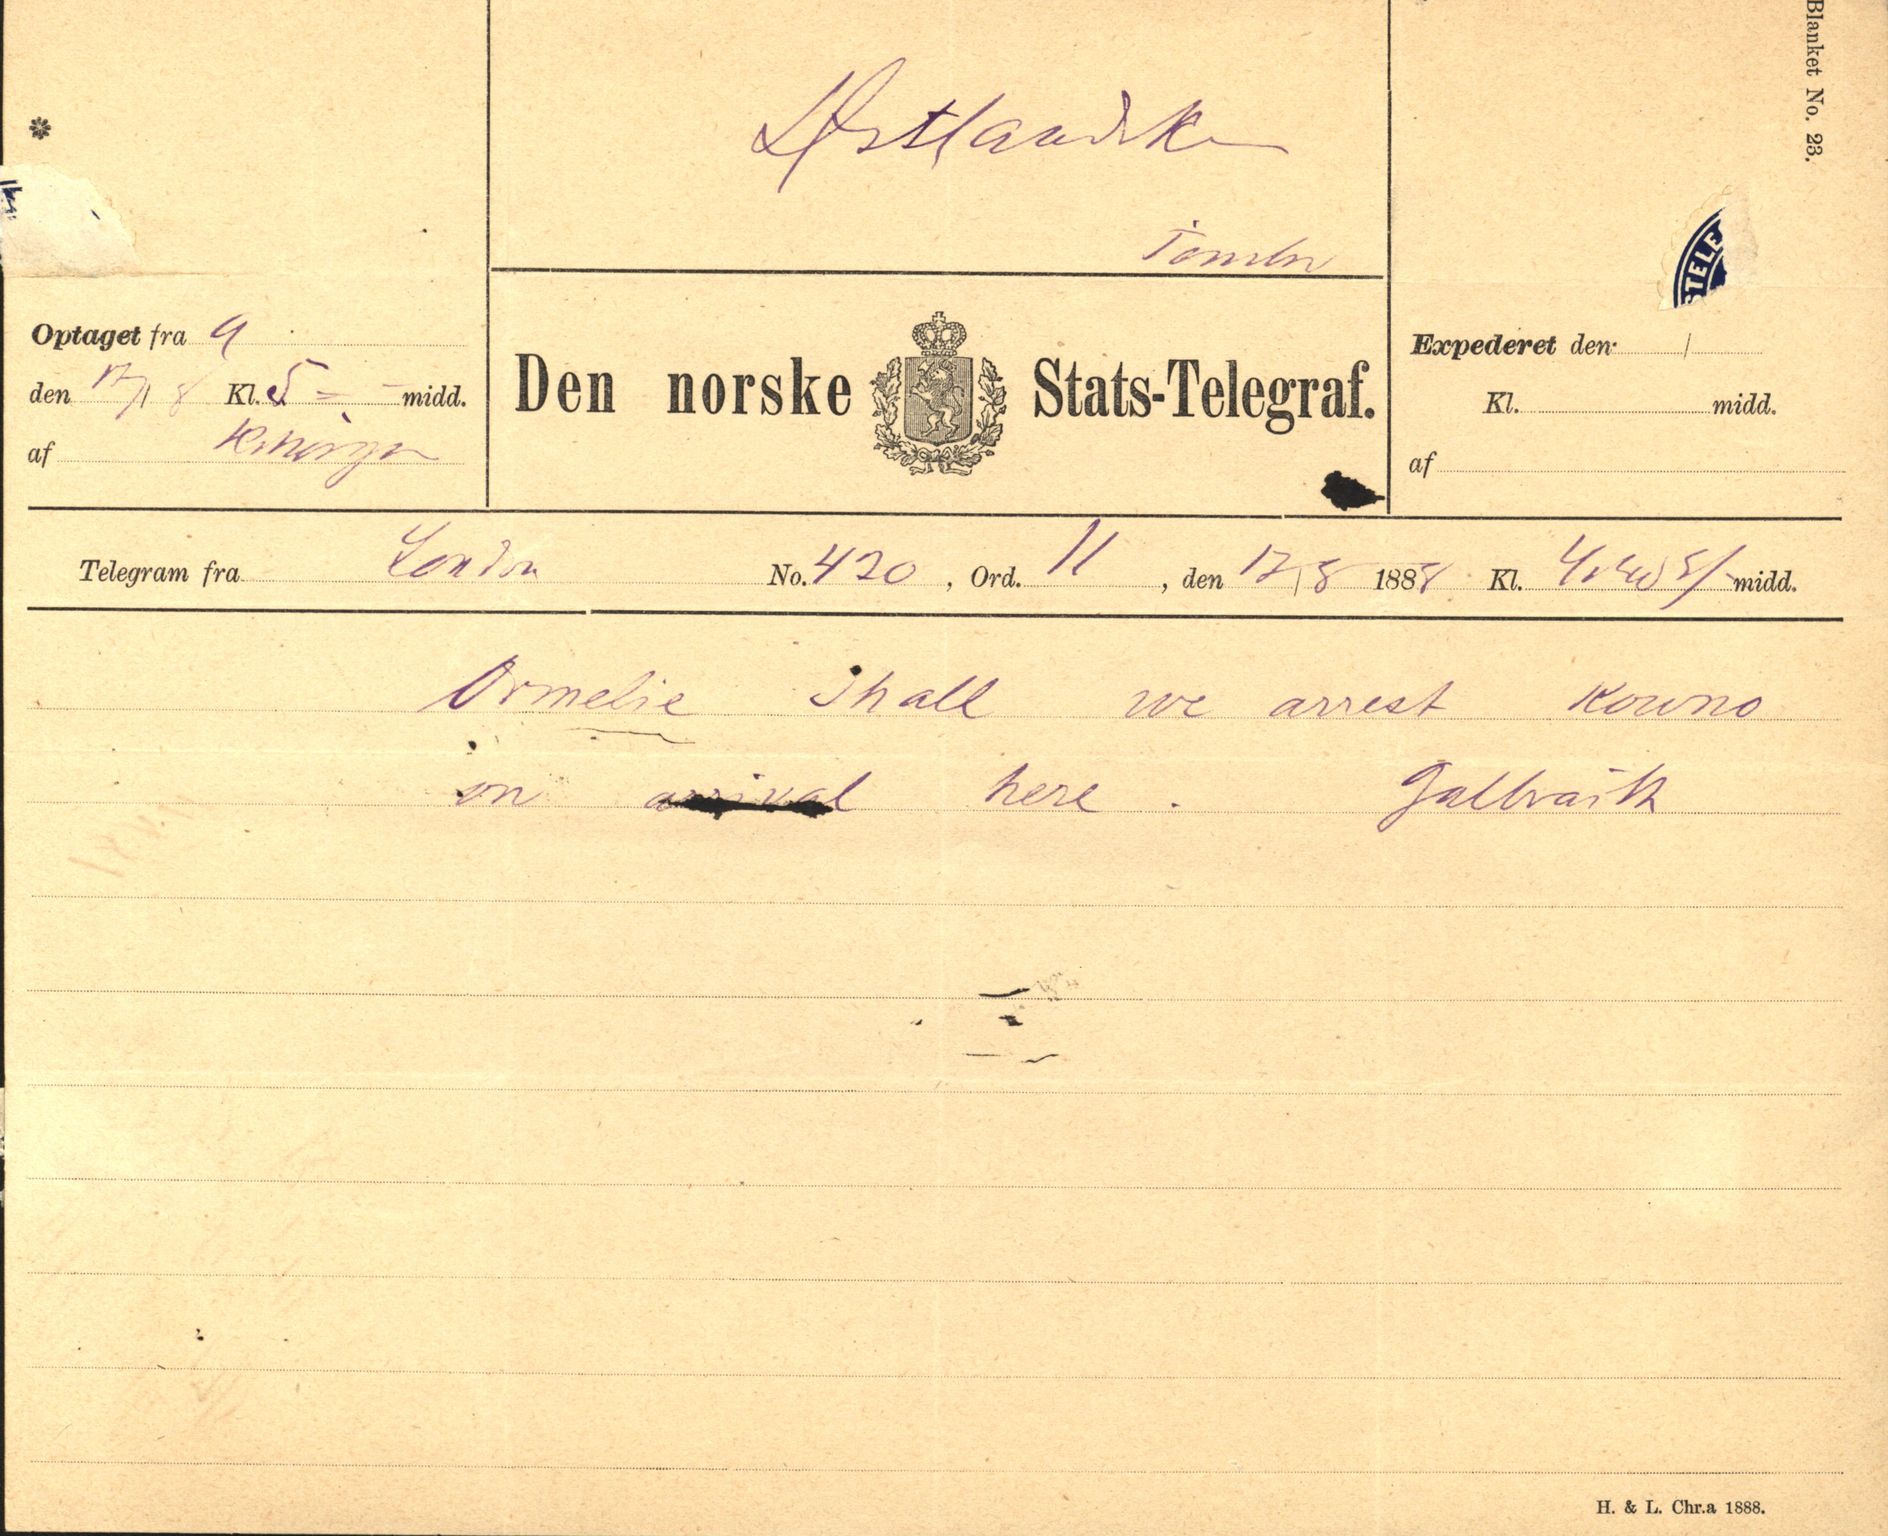 Blanket No. 23.
Østlandske
Optaget fra a
den 17/8 Kl. 5 = - midd.
af
Den norske Stats-Telegraf.
Expederet den /
Kl. midd.
af
STELE
Telegram fra London No. 420, Ord. 11, den 17/8 1888 Kl. midd.
Ormelie Shall we arrest Kowno
on arrival here. Galbraith
H. & L. Chr.a 1888.